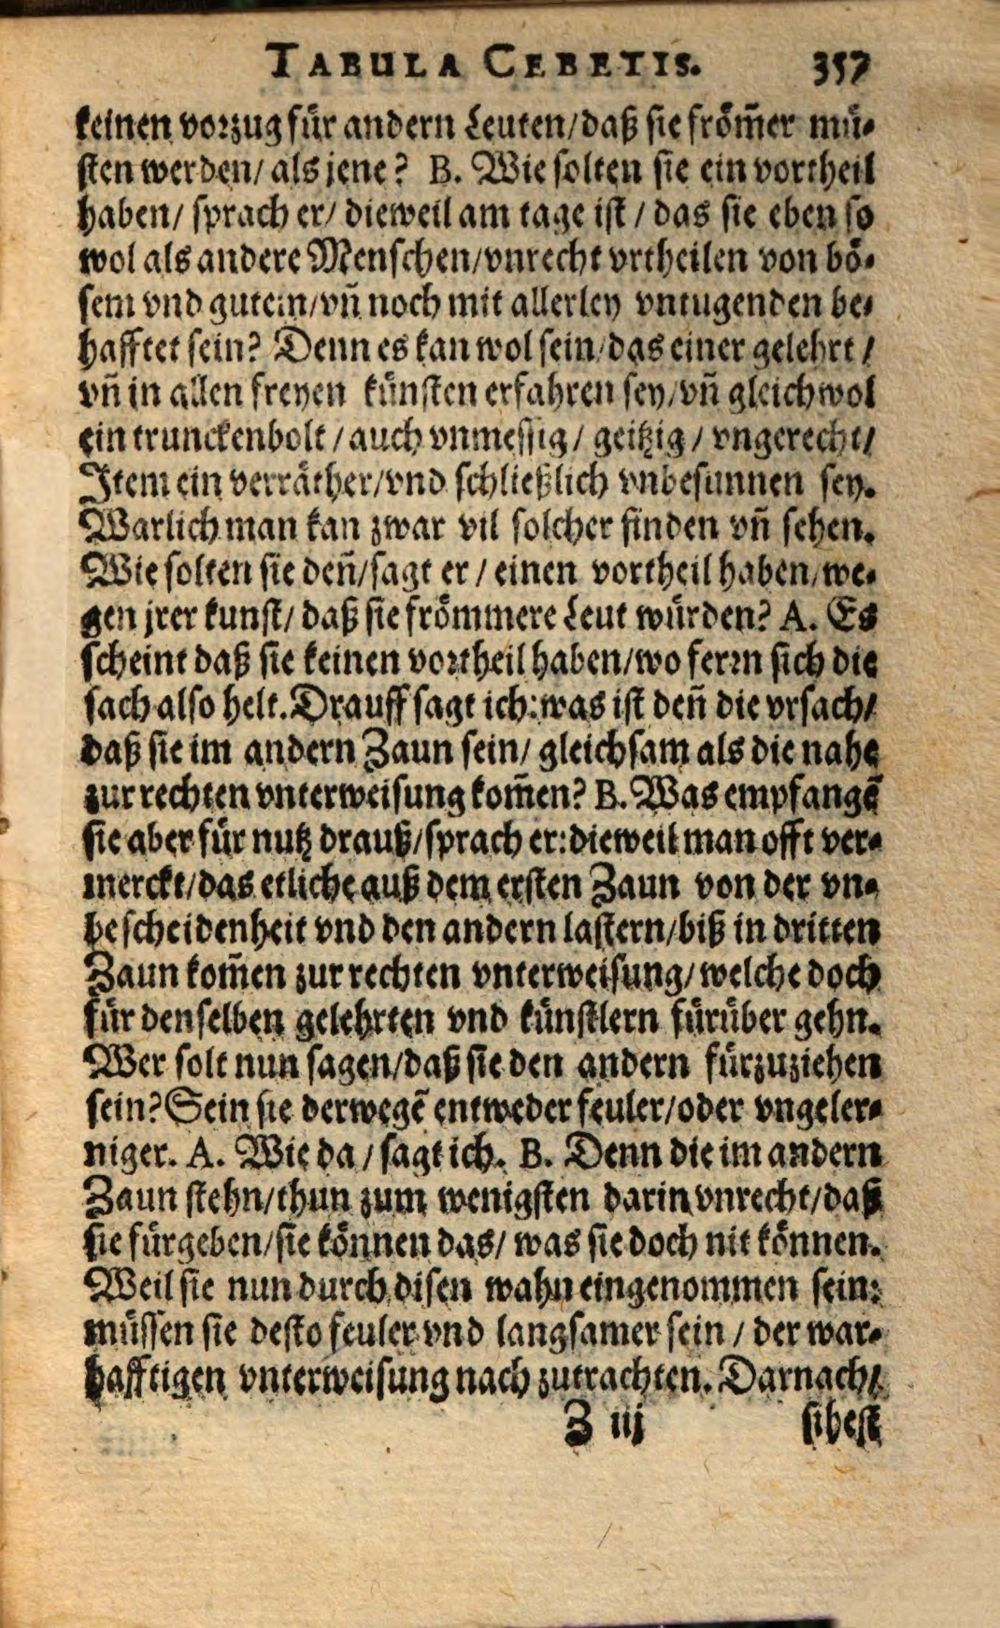 TABULA CEBETIS. 357
keinen vorzug für andern Leuten/daß sie from̄er mü-
sten werden/ als jene? B. Wie solten sie ein vortheil
haben/ sprach er/ dieweil am tage ist / das sie eben so
wol als andere Menschen/vnrecht vrtheilen von bö-
sem vnd gutem/vn̄ noch mit allerley vntugenden be-
hafftet sein? Denn es kan wol sein/das einer gelehrt /
vn̄ in allen freyen künsten erfahren sey/vn̄ gleichwol
ein trunckenbolt / auch vnmessig / geitzig / vngerecht/
Item ein verräther/vnd schließlich vnbesunnen sey.
Warlich man kan zwar vil solcher finden vn̄ sehen.
Wie solten sie den̄/sagt er / einen vortheil haben/we-
gen jrer kunst/ daß sie frömmere Leut würden? A. Es
scheint daß sie keinen vortheil haben/wo ferrn sich die
sach also helt. Drauff sagt ich: was ist den̄ die vrsach/
daß sie im andern Zaun sein/ gleichsam als die nahe
zur rechten vnterweisung kom̄en? B. Was empfangē
sie aber für nutz drauß/sprach er: dieweil man offt ver-
merckt/das etliche auß dem ersten Zaun von der vn-
bescheidenheit vnd den andern lastern/biß in dritten
Zaun kom̄en zur rechten vnterweisung/welche doch
für denselben gelehrten vnd künstlern fürüber gehn.
Wer solt nun sagen/daß sie den andern fürzuziehen
sein? Sein sie derwegē entweder feuler/oder vngeler-
niger. A. Wie da / sagt ich. B. Denn die im andern
Zaun stehn/thun zum wenigsten darin vnrecht/daß
sie fürgeben/sie können das/ was sie doch nit können.
Weil sie nun durch disen wahn eingenommen sein:
müssen sie desto feuler vnd langsamer sein / der war-
hafftigen vnterweisung nach zutrachten. Darnach/
Z iij sihest